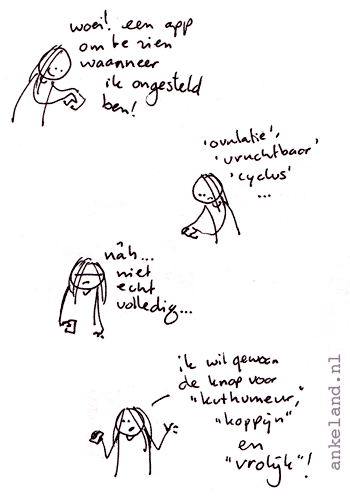 woei! een app
om te zien
waanneer
ik ongesteld
ben!
'ovulatie',
'vruchtbaar'
'cyclus'
...
nâh...
niet
echt
volledig...
ik wil gewoon
de knop voor
"kuthumeur",
"koppijn"
en
"vrolijk"!
ankeland.nl